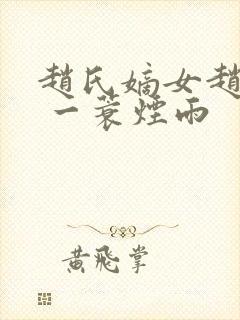 趙氏嫡女趙
一蓑煙雨
黃飛掌